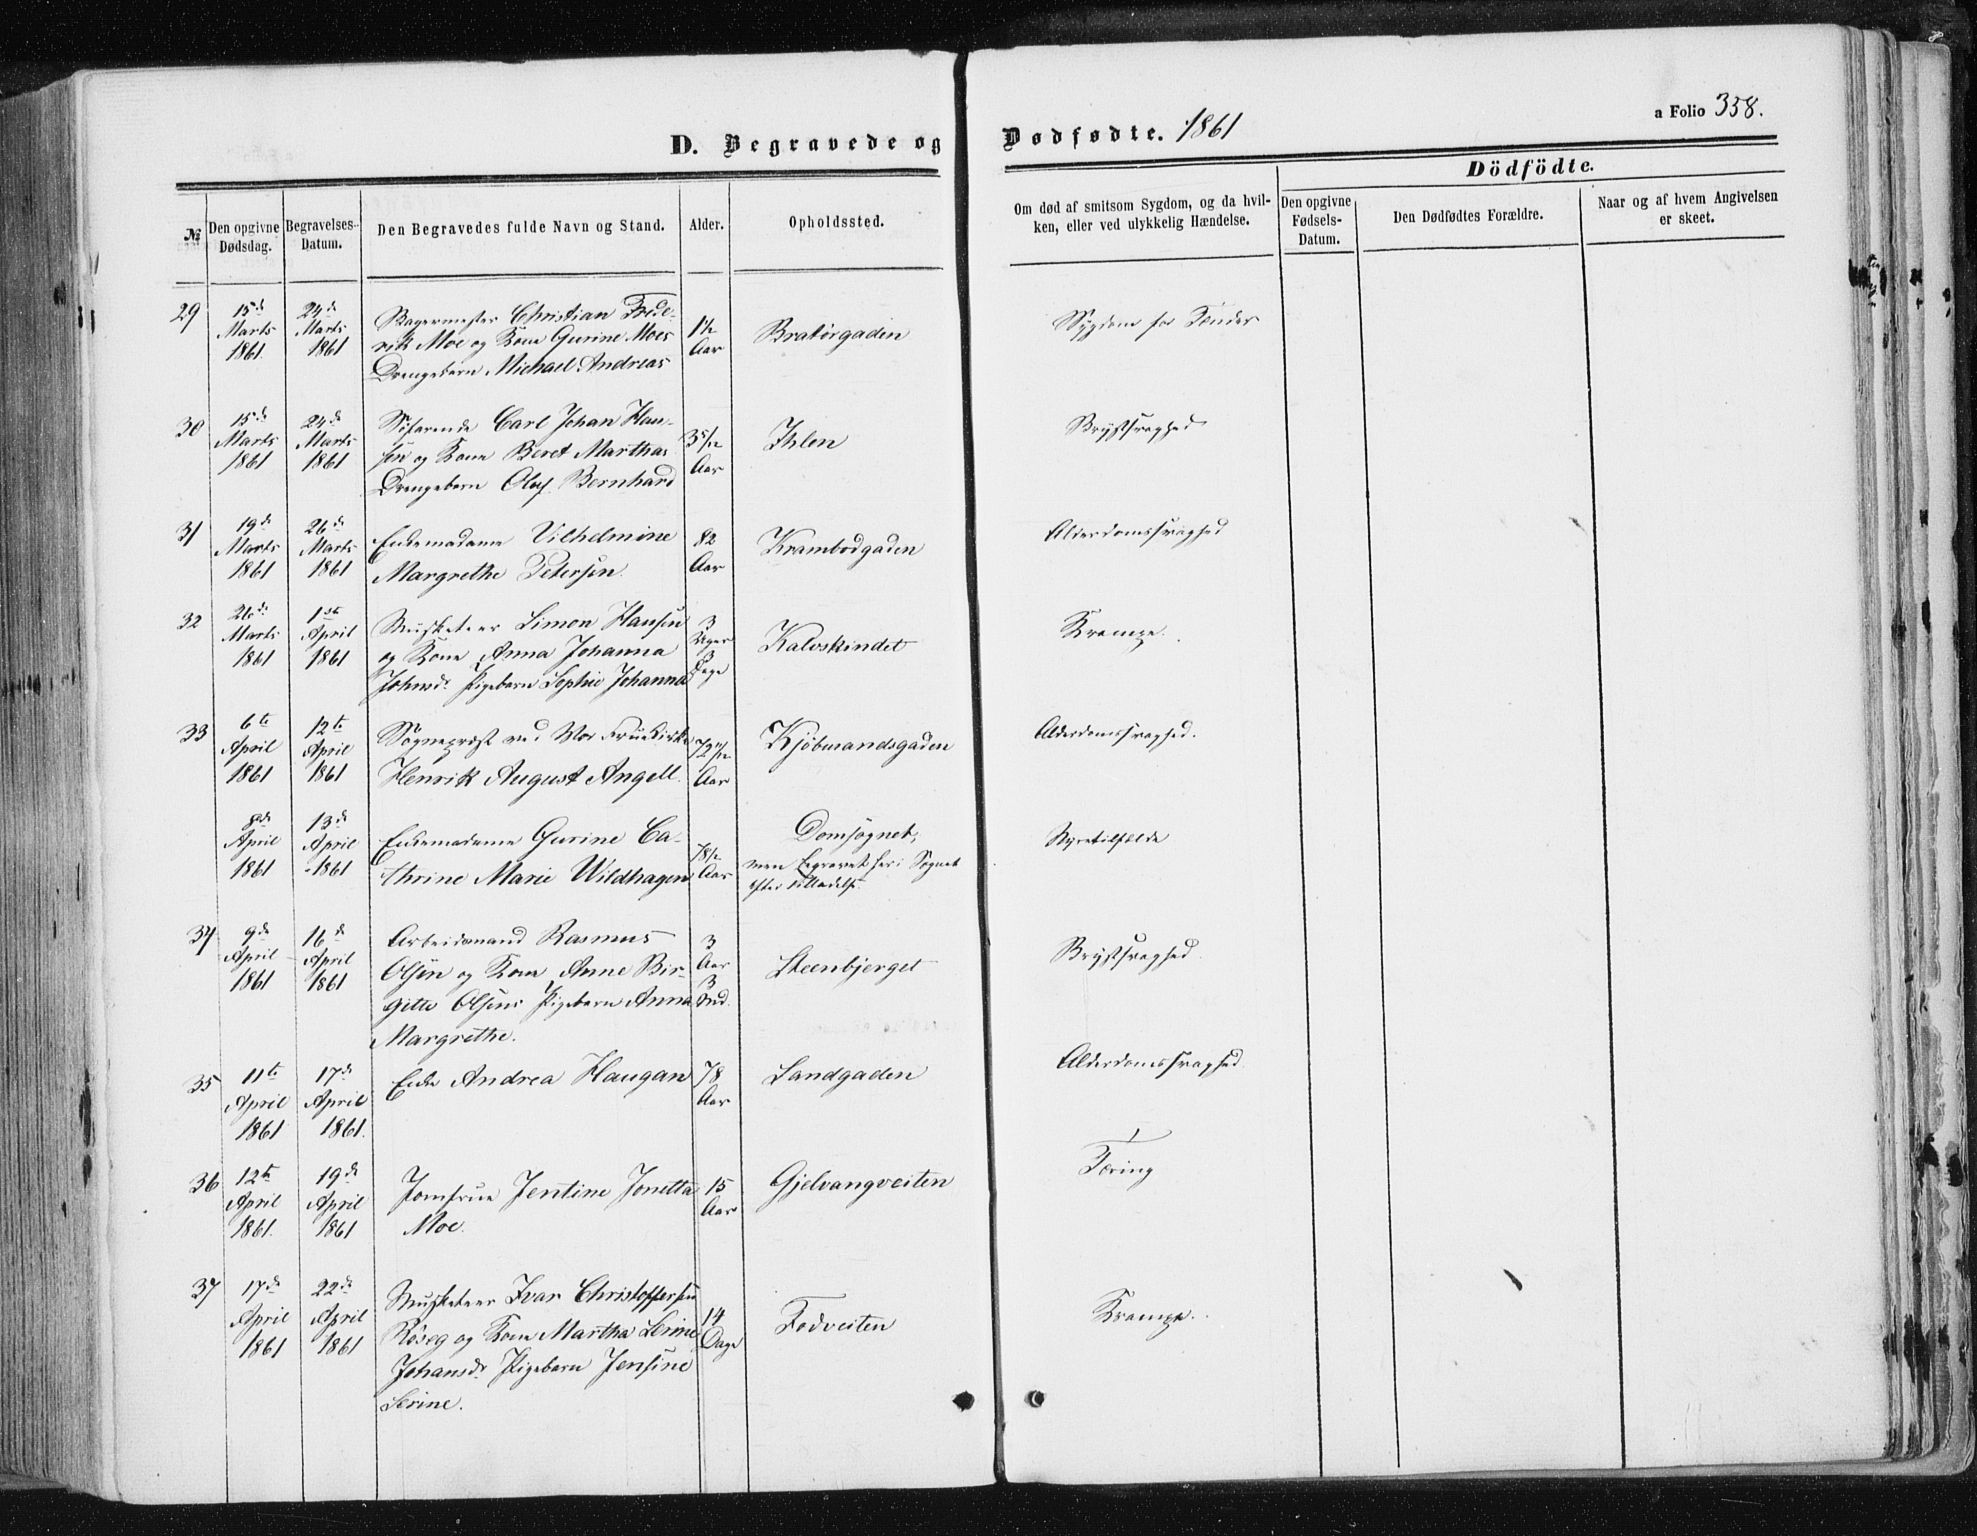 D. Begravede og Dødfødte. 1861
a Folio 358.
№
Den opgivne Dødsdag.
Begravelses-Datum.
Den Begravedes fulde Navn og Stand.
Alder.
Opholdssted.
Om død af smitsom Sygdom, og da hvil-
ken, eller ved ulykkelig Hændelse.
Dödfödte.
Den opgivne Fødsels-Datum.
Den Dødfødtes Forældre.
Naar og af hvem Angivelsen er skeet.
29
15de Marts 1861.
24de Marts 1861
Bagermester Christian Frede-
rik Moe og Kone Gurine Moes
Drengebarn Michael Andreas
1½ Aar
Bratørgaden
Sygdom for Tænder
30
15de Marts 1861
24de Marts 1861
Søfarende Carl Johan Han-
sen og Kone Beret Marthas
Drengebarn Oluf Bernhard
3½ Aar
Ihlen
Brystsvaghed
31
19de Marts 1861
26de Marts 1861
Enkemadame Vilhelmine
Margrethe Petersen.
82 Aar
Krambodgaden
Alderdomssvaghed
32
26de Marts 1861
1ste April 1861
Musketeer Simon Hansen
og Kone Anna Johanna
Johnsdr Pigebarn Sophie Johanna
3 Uger 3 Dage
Kalvskindet
Krampe.
33
6te April 1861
12te April 1861
Sognepræst ved Vor Frue Kirke
Henrik August Angell.
Aar
Kjöbmandsgaden
Alderdomssvaghed.
8de April 1861
13de April 1861
Enkemadame Gurine Ca-
thrine Marie Wildhagen
78½ Aar
Domsognet,
men begravet her i Sognet
efter Tilladelse.
Styretilfælde
34
9de April 1861
16de April 1861
Arbeidsmand Rasmus
Olsen og Kone Anne Bir-
gitte Olsens Pigebarn Anna
Margrethe.
3 Aar 3 Md.
Steenbjerget
Brystsvaghed.
35
11te April 1861
17de April 1861.
Enke Andrea Haugan
78 Aar
Sandgaden
Alderdomssvaghed
36
12te April 1861.
19de April 1861
Jomfrue Jentine Jonetta
Moe.
15 Aar
Gjelvangveiten
Tæring
37
17de April 1861
22de April 1861
Musketeer Ivar Christoffersen
Røseg og Kone Martha Serine
Johansdr Pigebarn Jensine
Serine.
14 Dage
Fodveiten
Krampe.